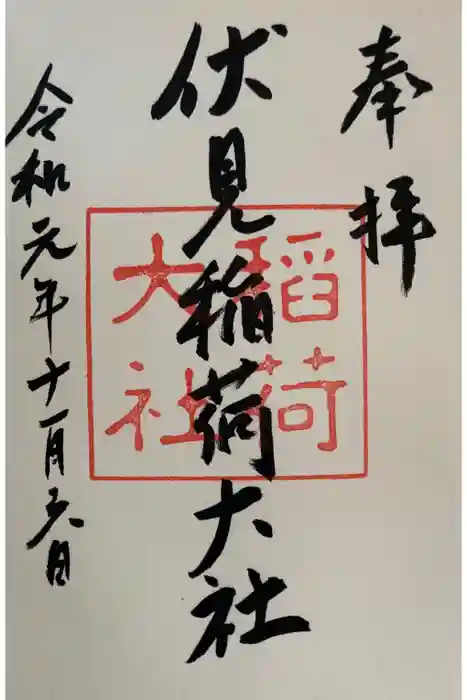 奉拝
伏見稲荷大社
稲荷
大社
令和元年十一月六日